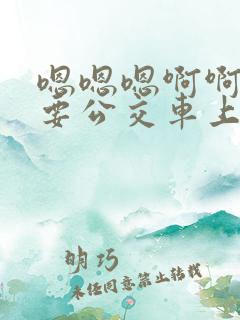 嗯嗯嗯啊啊
要公交車上
明巧
未经同意禁止转载